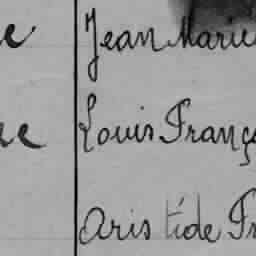 Jean Marie
Louis Franç
Aristide Fr